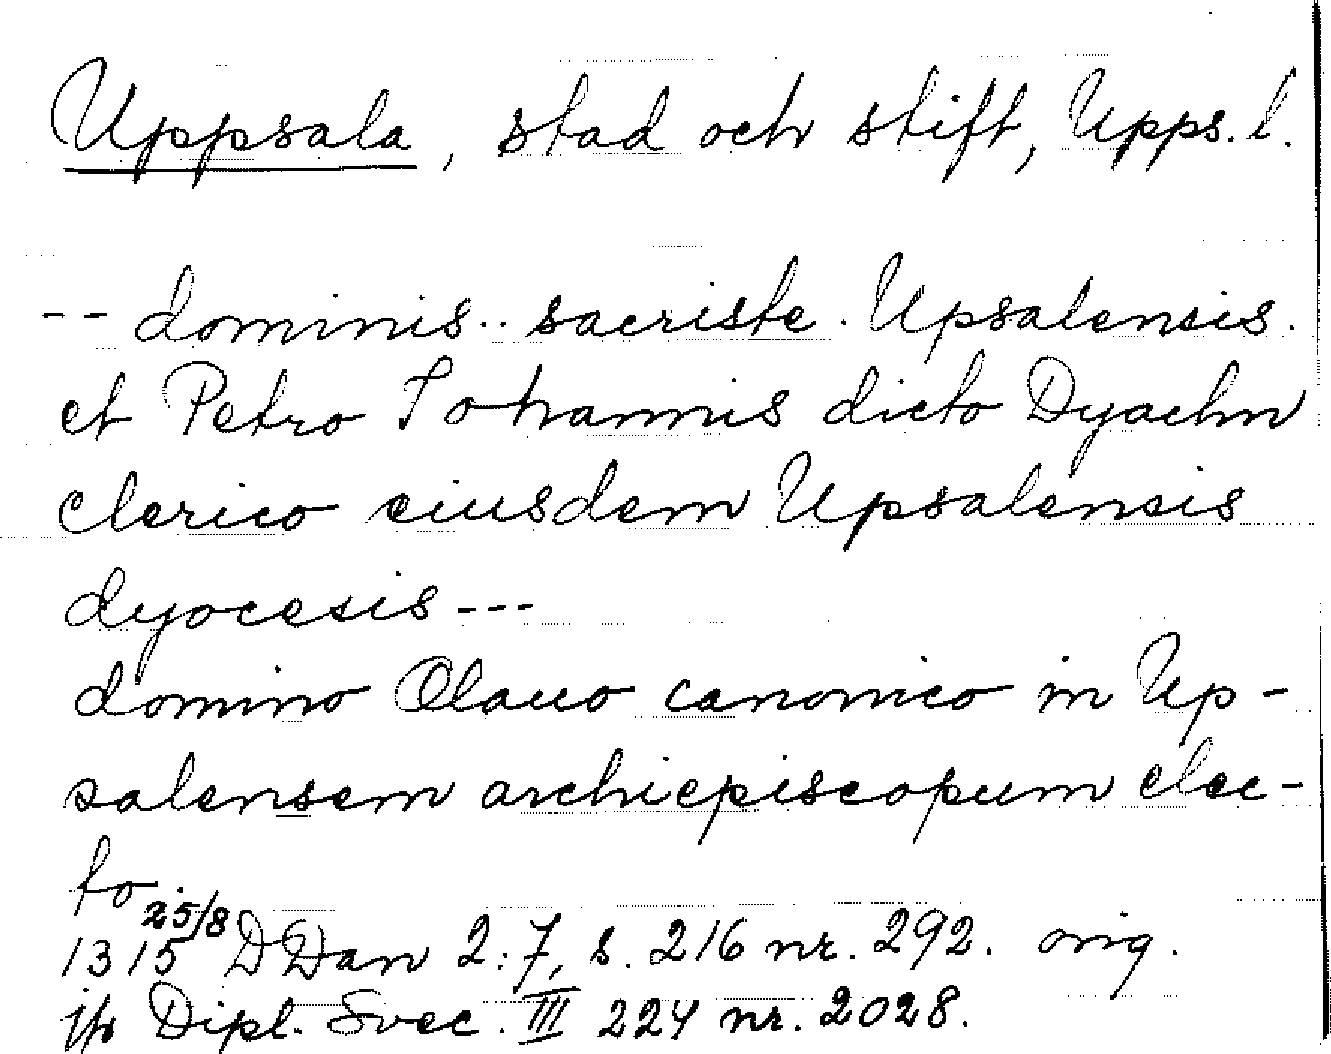 Uppsala, stad och stift, Upps. l.
-- dominis .. sacriste . Upsalensis .
et Petro Iohannis dicto Dyaehn
clerico eiusdem Upsalensis
dyocesis ---
domino Olauo canonico in Up-
salensem archiepiscopum elec-
to
1315 25/8 DDan 2:7, s. 216 nr. 292. orig.
jfr Dipl. Svec. III 224 nr. 2028.